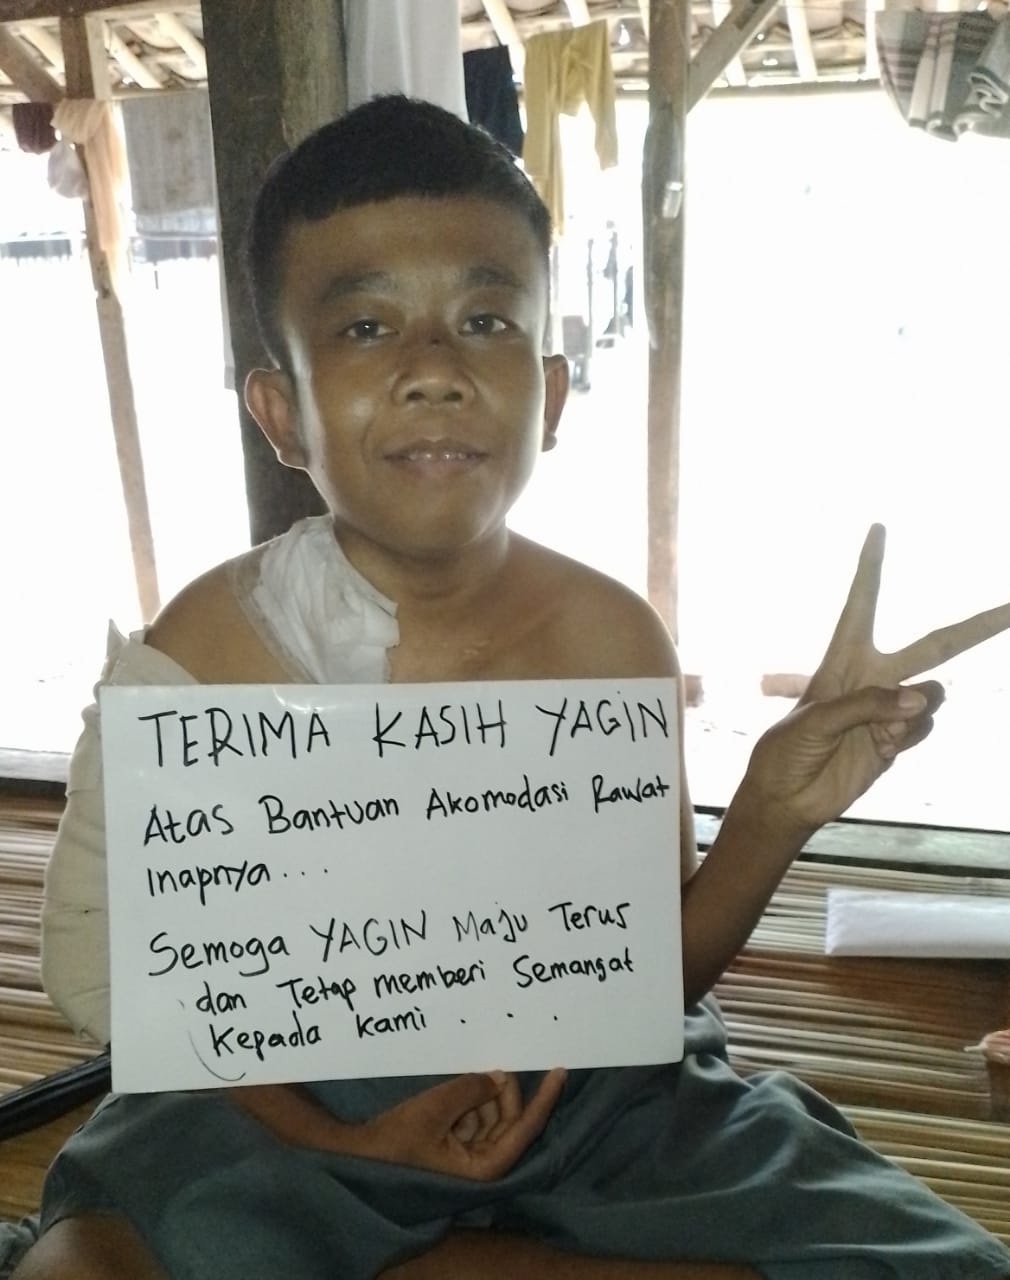 TERIMA KASIH YAGiN
Atas Bantuan Akomodasi Rawat
inapnya...
Semoga YAGIN Maju Terus
dan Tetap memberi Semangat
Kepada Kami . . .